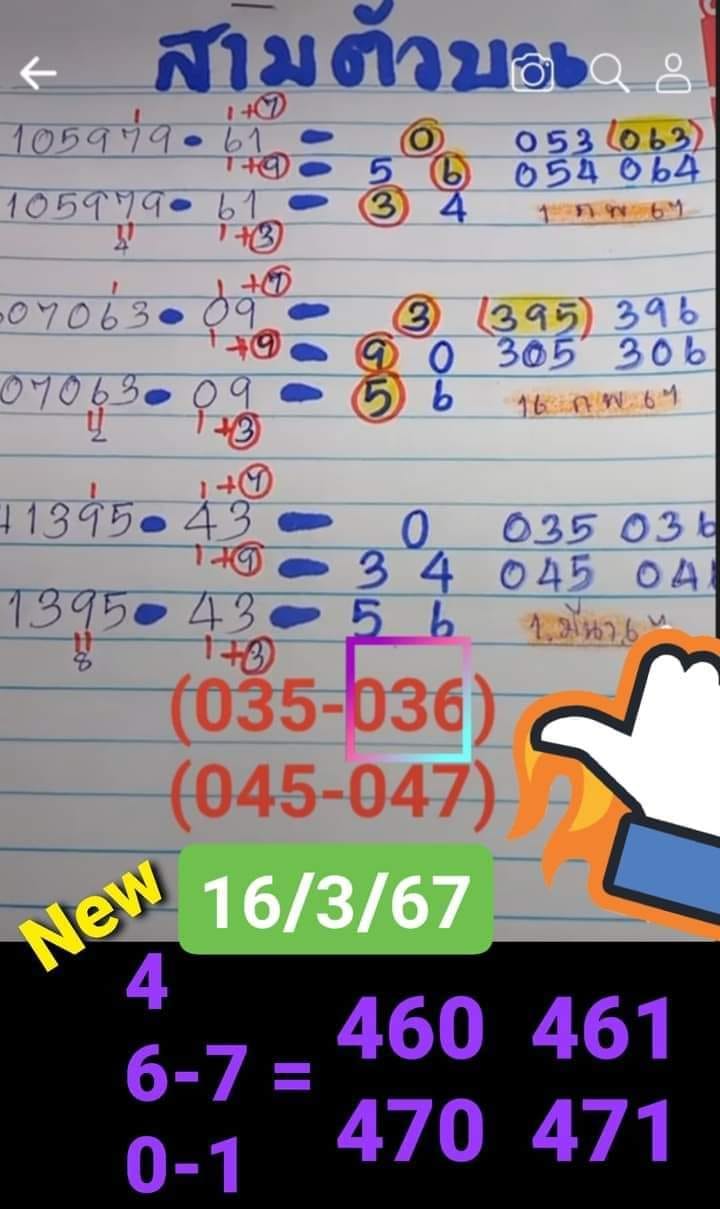 สามตัวบน
1 1+7
105979 - 61 - 0 053 (063)
1+9 - 5 6 054 064
105979 - 61 - 3 4 1 กพ 67
4 1+3
1 1+7
07063 - 09 - 3 (395) 396
1+9 - 9 0 305 306
07063 - 09 - 5 6 16 กพ 67
2 1+3
1 1+7
41395 - 43 - 0 035 036
1+9 - 3 4 045
1395 - 43 - 5 6 1 มีนา 67
8 1+3
(035-036)
(045-047)
New 16/3/67
4
460 461
6-7 =
470 471
0-1